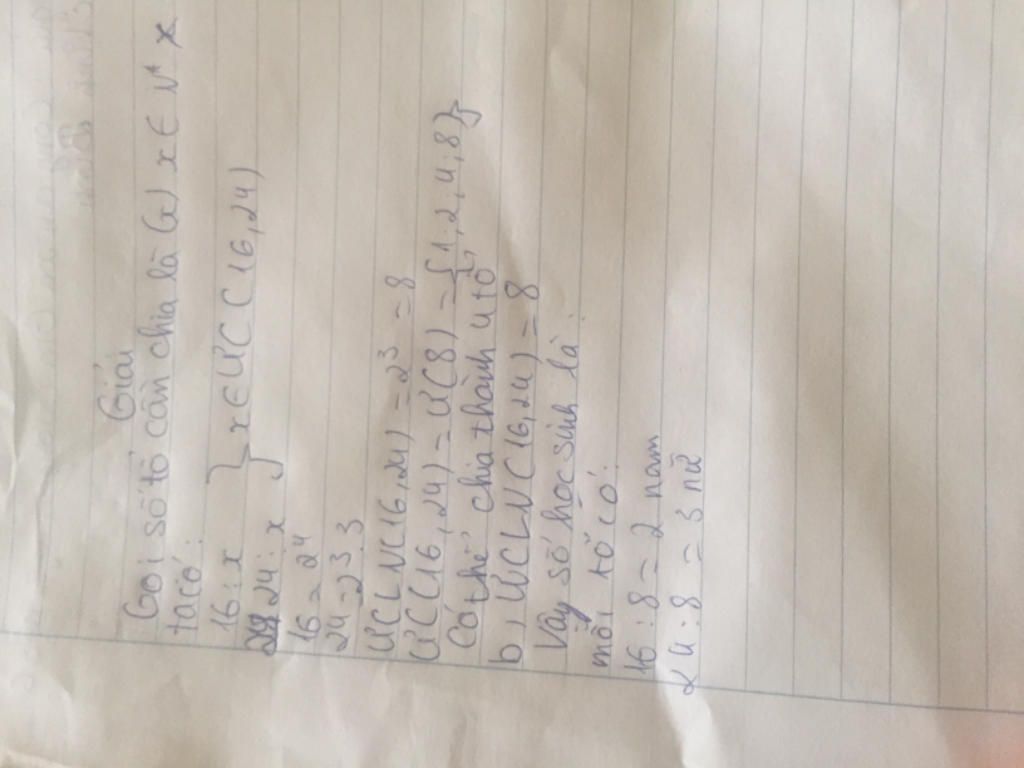 Giải
Gọi số tổ cần chia là (x) x ∈ N*
ta có:
16 : x
24 : x } x ∈ ƯC (16,24)
16 = 2⁴
24 = 2³.3
ƯCLN(16,24) = 2³ = 8
ƯC(16,24) = Ư(8) = {1,2,4,8}
Có thể chia thành 4 tổ
b, ƯCLN(16,24) = 8
Vậy số học sinh là:
mỗi tổ có:
16 : 8 = 2 nam
24 : 8 = 3 nữ